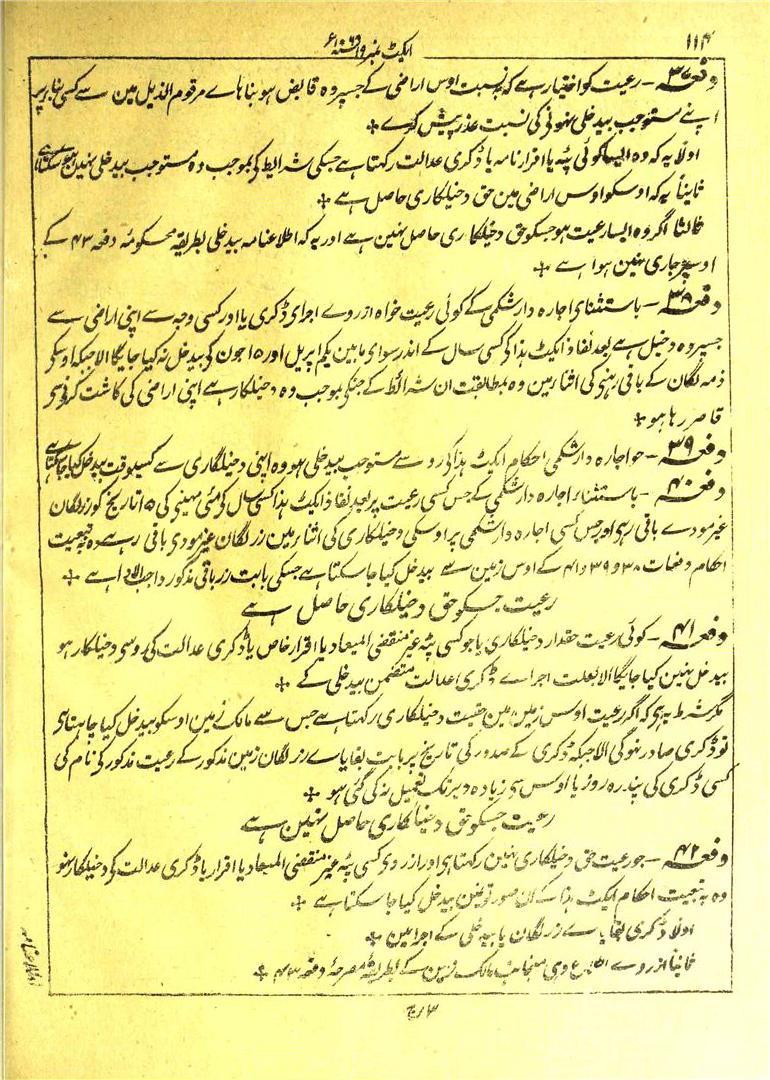 ۱۱۴
ایکٹ نمبر ۱۹ سنہ ۱۸۶۸ع
دفعہ ۳۷ – رعیت کو اختیار ہے کہ بہ نسبت اوس اراضی کے جسپر وہ قابض ہو بنا ہاے مرقوم الذیل مین سے کسی بنا پر
اپنے مستوجب بیدخلی نہونی کی نسبت عذر پیش کرے +
اولاً یہ کہ وہ ایسا کوئی پٹہ یا اقرار نامہ یا ڈگری عدالت رکھتا ہے جسکی شرایط کی بموجب وہ مستوجب بیدخلی نہین ہو سکتا ہے
ثانیاً یہ کہ اوسکو اوس اراضی مین حق دخیلکاری حاصل ہے +
ثالثاً اگر وہ ایسا رعیت ہو جسکو حق دخیلکاری حاصل نہین ہے اور یہ کہ اطلاعنامہ بیدخلی بطریقہ محکومہ دفعہ ۴۳ کے
اوسپر جاری نہین ہوا ہے +
دفعہ ۳۸ – باستثنای اجارہ دار شکمی کے کوئی رعیت خواہ از روے اجرای ڈگری یا اور کسی وجہ سے اپنی اراضی سے
جسپر وہ دخیل ہے بعد نفاذ ایکٹ ہذا کو کسی سال کے اندر سوای مابین یکم اپریل اور ۱۵ جون کی بیدخل نہ کیا جایگا الا جبکہ اوسکو
ذمہ لگان کے باقی رہنی کی اثنا مین وہ بمطابقت ان شرائط کے جنکی بموجب وہ دخیلکار ہے اپنی اراضی کی کاشت کرنی سی
قاصر رہا ہو +
دفعہ ۳۹ – جو اجارہ دار شکمی احکام ایکٹ ہذا کی رو سے مستوجب بیدخلی ہو وہ اپنی دخیلکاری سے کسیوقت بیدخل کیا جا سکتا ہے
دفعہ ۴۰ – باستثناء اجارہ دار شکمی کے جس کسی رعیت پر بعد نفاذ ایکٹ ہذا کسی سال کی مئی مہینی کی ۱۵ تاریخ کو زر لگان
غیر مودے باقی رہی اور جس کسی اجارہ دار شکمی پر اوسکی دخیلکاری کی اثنا مین زر لگان غیر مودی باقی رہے وہ بہ تبعیت
احکام دفعات ۳۸ و ۳۹ و ۴۱ کے اوس زمین سے بیدخل کیا جا سکتا ہے جسکی بابت زر باقی مذکور واجب الادا ہے +
رعیت جسکو حق دخیلکاری حاصل ہے
دفعہ ۴۱ – کوئی رعیت حقدار دخیلکاری یا جو کسی پٹہ غیر منقضی المیعاد یا اقرار خاص یا ڈگری عدالت کی روسی دخیلکار ہو
بیدخل نہین کیا جایگا الا بعلت اجراے ڈگری عدالت متضمن بیدخلی کے +
مگر شرط یہ ہی کہ اگر رعیت اوس زمین مین حقیت دخیلکاری رکھتا ہے جس سے مالک زمین اوسکو بیدخل کیا چاہتا ہی
تو ڈگری صادر نہو گی الا جبکہ ڈگری کے صدور کی تاریخ پر بابت بقایاے زر لگان زمین مذکور کے رعیت مذکور کی نام کی
کسی ڈگری کی پندرہ روز یا اوس سی زیادہ دیر تک تعمیل نہ کی گئی ہو +
رعیت جسکو حق دخیلکاری حاصل نہین ہے
دفعہ ۴۲ – جو رعیت حق دخیلکاری نہین رکھتا ہی اور از روی کسی پٹہ غیر منقضی المیعاد یا اقرار یا ڈگری عدالت کی دخیلکار نہو
وہ بہ تبعیت احکام ایکٹ ہذا کے ان صورتونمین بیدخل کیا جا سکتا ہے +
اولاً ڈگری بقایاے زر لگان یا بیدخلی کے اجرا مین +
ثانیاً از روے اطلاع دہی منجانب مالک زمین کے بطریقہ مصرحہ دفعہ ۴۳ +